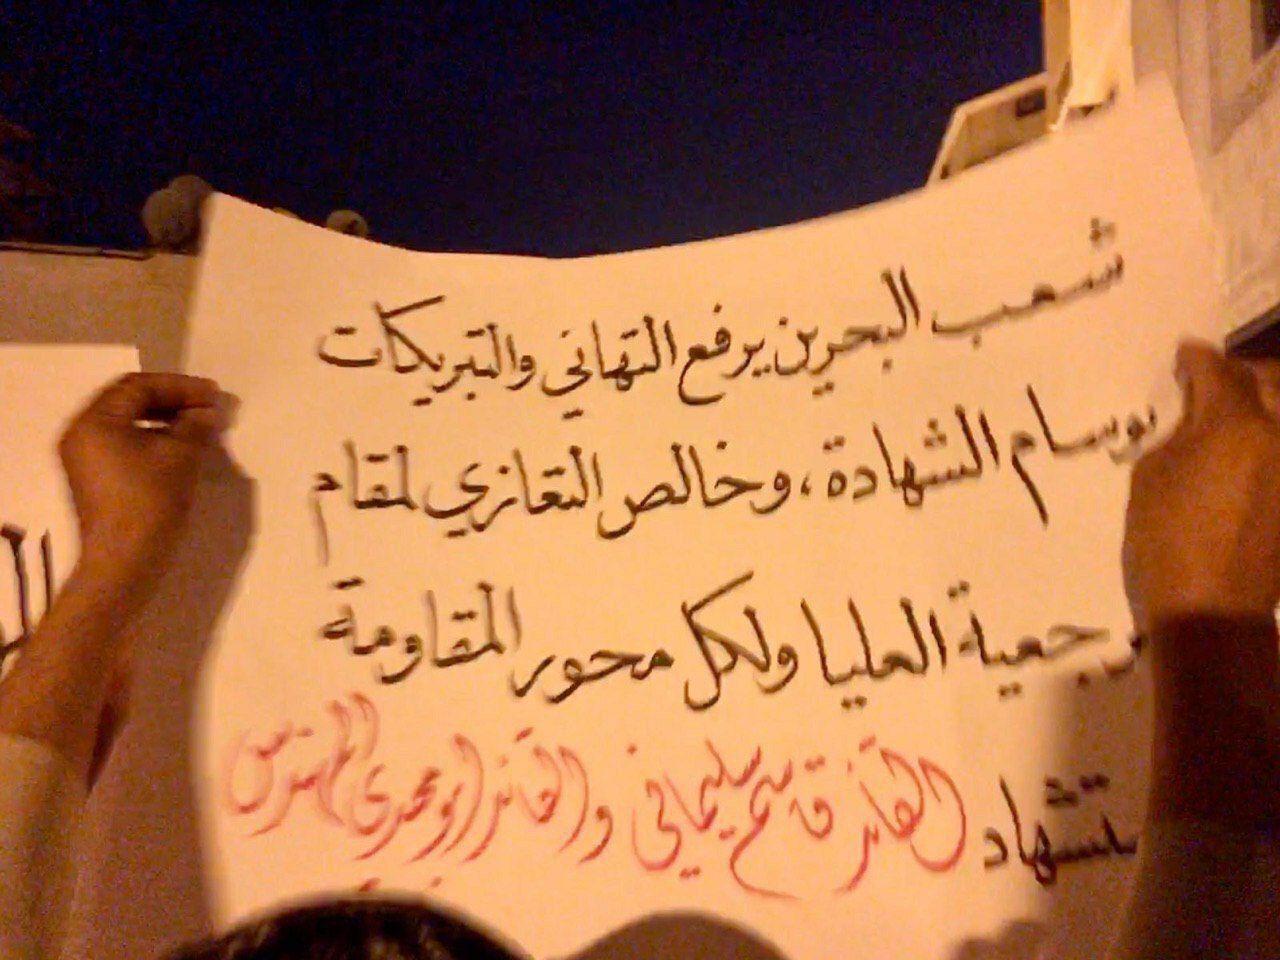 شعب البحرين يرفع التهاني والتبريكات
بوسام الشهادة، وخالص التعازي لمقام
رجعية العليا ولكل محور المقاومة
ستشهاد القائد قاسم سليماني والقائد ابو مهدي المهندس